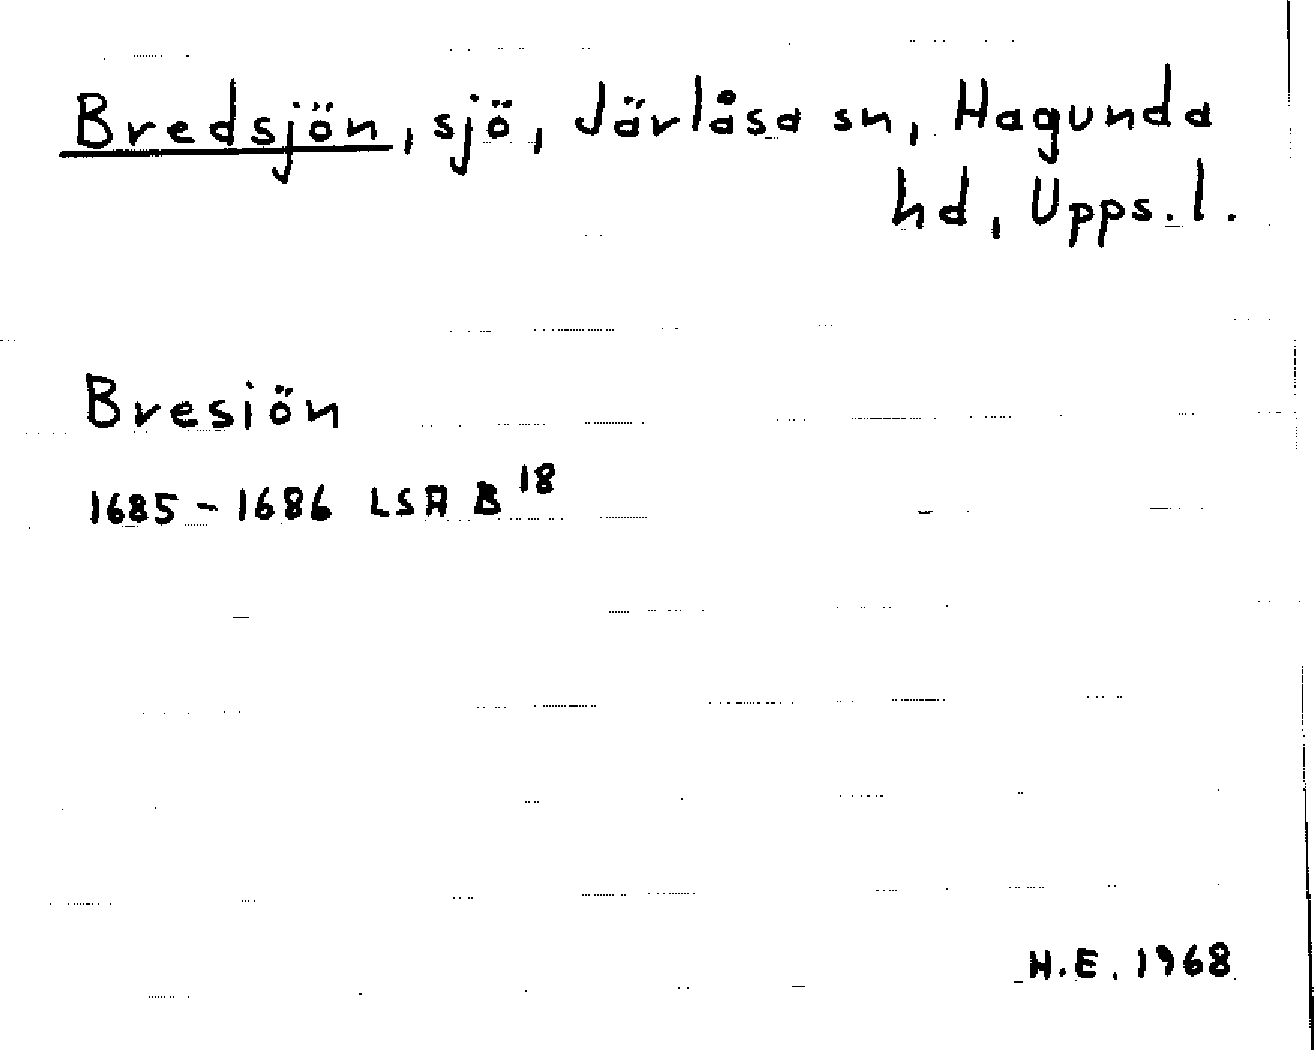 Bredsjön, sjö, Järlåsa sn, Hagunda
hd, Upps. l.
Bresiön
1685-1686 LSA B 18
H.E. 1968